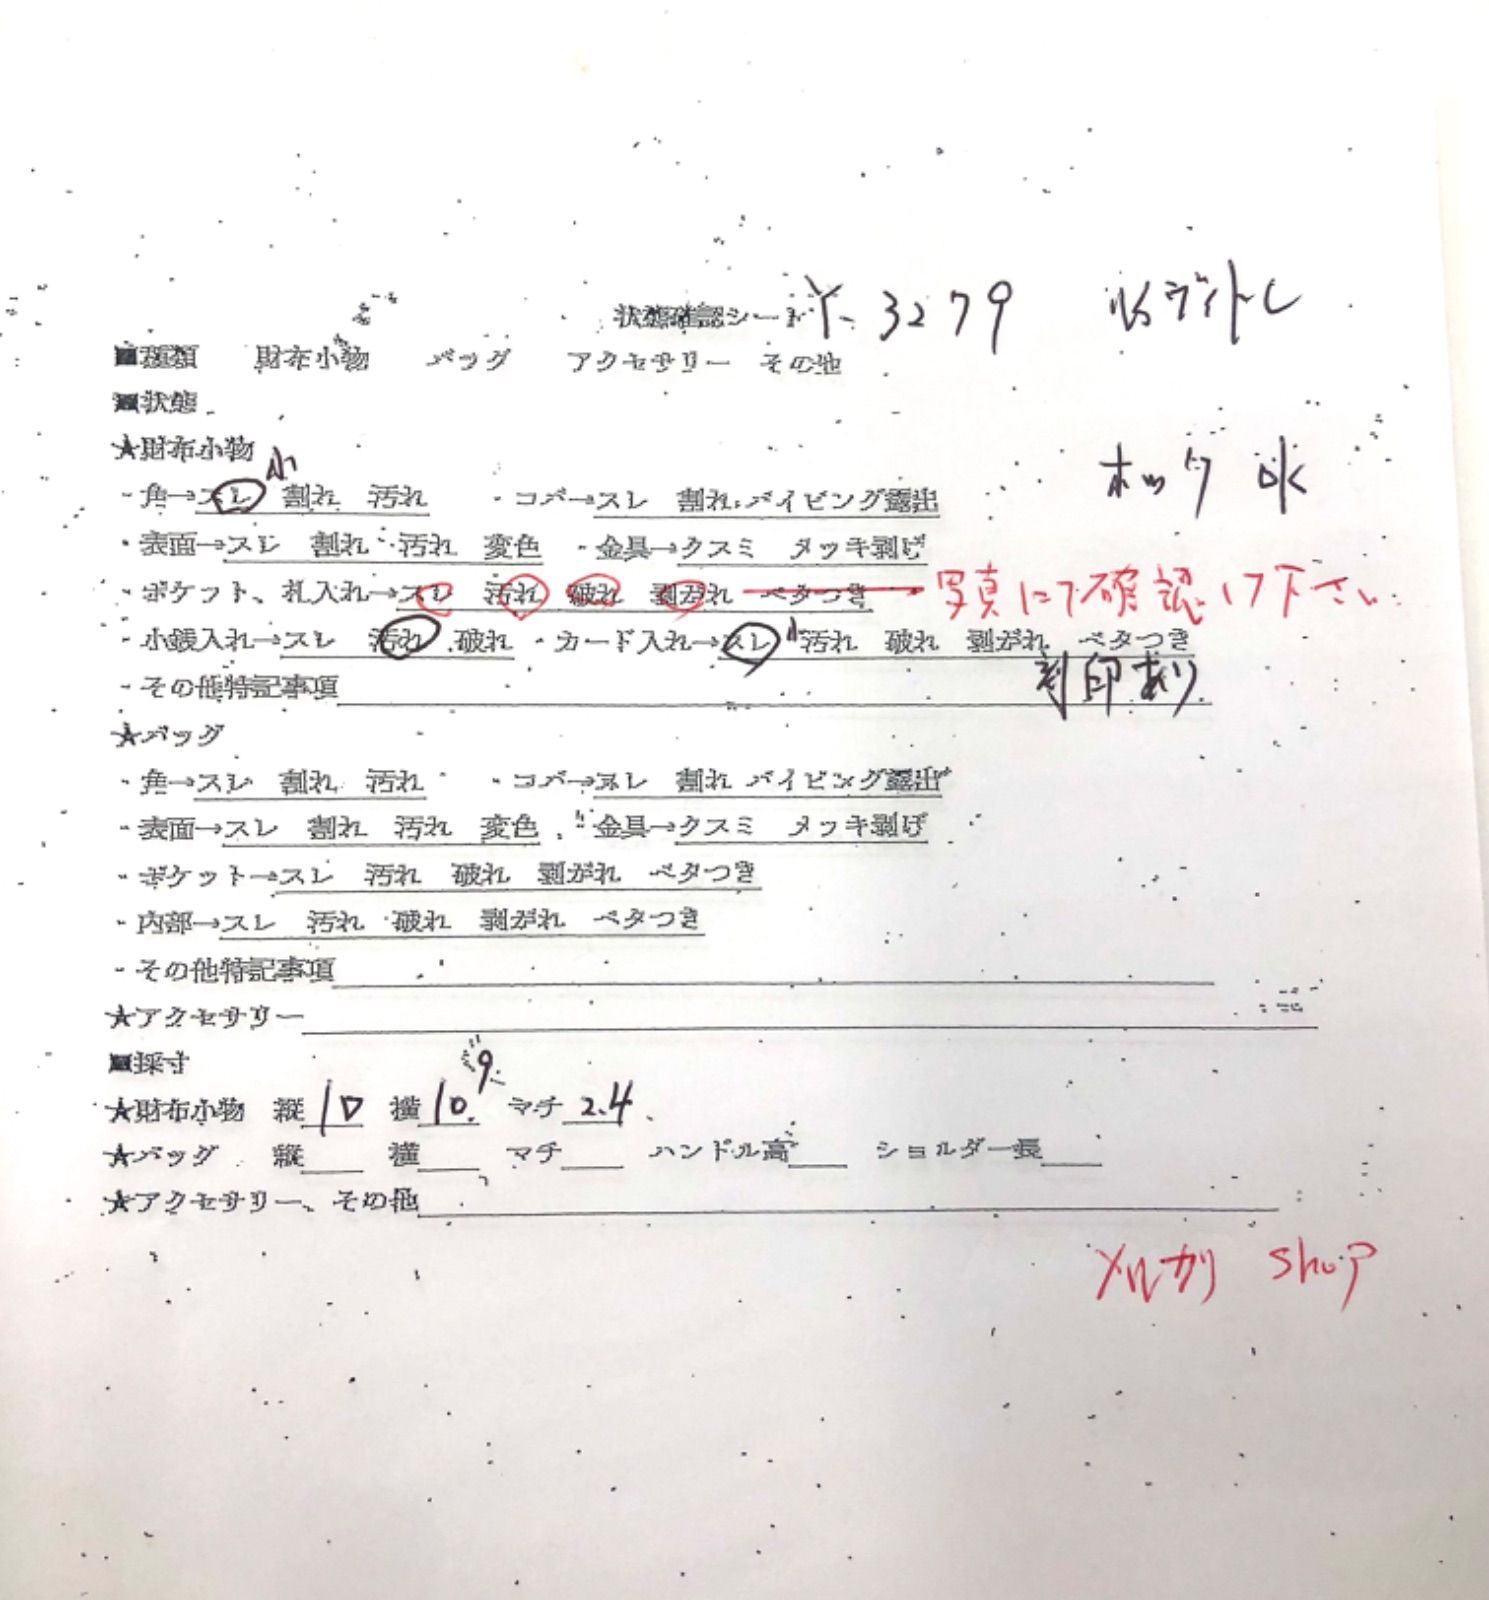 状態確認シート Y-3279 ルイヴィトン
■種類 財布小物 バッグ アクセサリー その他
■状態
★財布小物
ホック OK
・角→スレ 小 割れ 汚れ ・コバ→スレ 割れ パイピング露出
・表面→スレ 割れ 汚れ 変色 ・金具→クスミ メッキ剥げ
・ポケット、札入れ→スレ 汚れ 破れ 剥がれ ベタつき 写真にて確認して下さい
・小銭入れ→スレ 汚れ 破れ ・カード入れ→スレ 小 汚れ 破れ 剥がれ ベタつき
・その他特記事項 刻印あり
★バッグ
・角→スレ 割れ 汚れ ・コバ→スレ 割れ パイピング露出
・表面→スレ 割れ 汚れ 変色 ・金具→クスミ メッキ剥げ
・ポケット→スレ 汚れ 破れ 剥がれ ベタつき
・内部→スレ 汚れ 破れ 剥がれ ベタつき
・その他特記事項
★アクセサリー
■採寸
★財布小物 縦 10 横 10 9 マチ 2.4
★バッグ 縦 横 マチ ハンドル高 ショルダー長
★アクセサリー、その他
メルカリ Shop